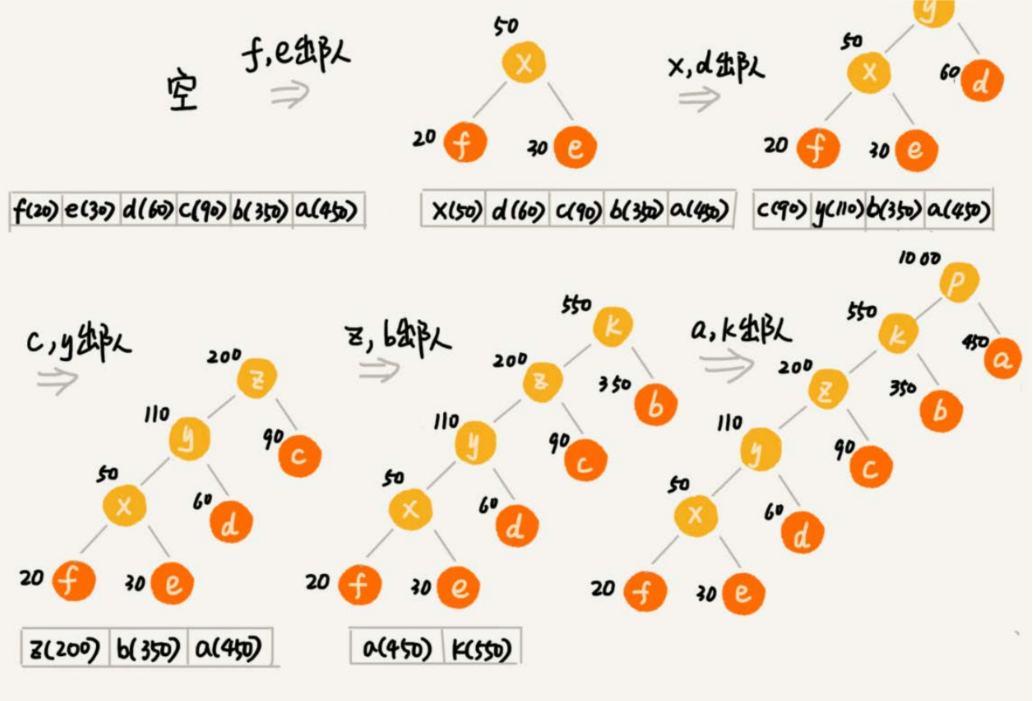 空
f,e出队
50
x
20 f
30 e
x,d出队
y
50
x
60 d
20 f
30 e
f(20) e(30) d(60) c(90) b(350) a(450)
x(50) d(60) c(90) b(350) a(450)
c(90) y(110) b(350) a(450)
c,y出队
200
z
110
y
90 c
50
x
60 d
20 f
30 e
z(200) b(350) a(450)
z,b出队
550
k
200
z
350 b
110
y
90 c
50
x
60 d
20 f
30 e
a(450) k(550)
a,k出队
1000
p
550
k
450 a
200
z
350 b
110
y
90 c
50
x
60 d
20 f
30 e